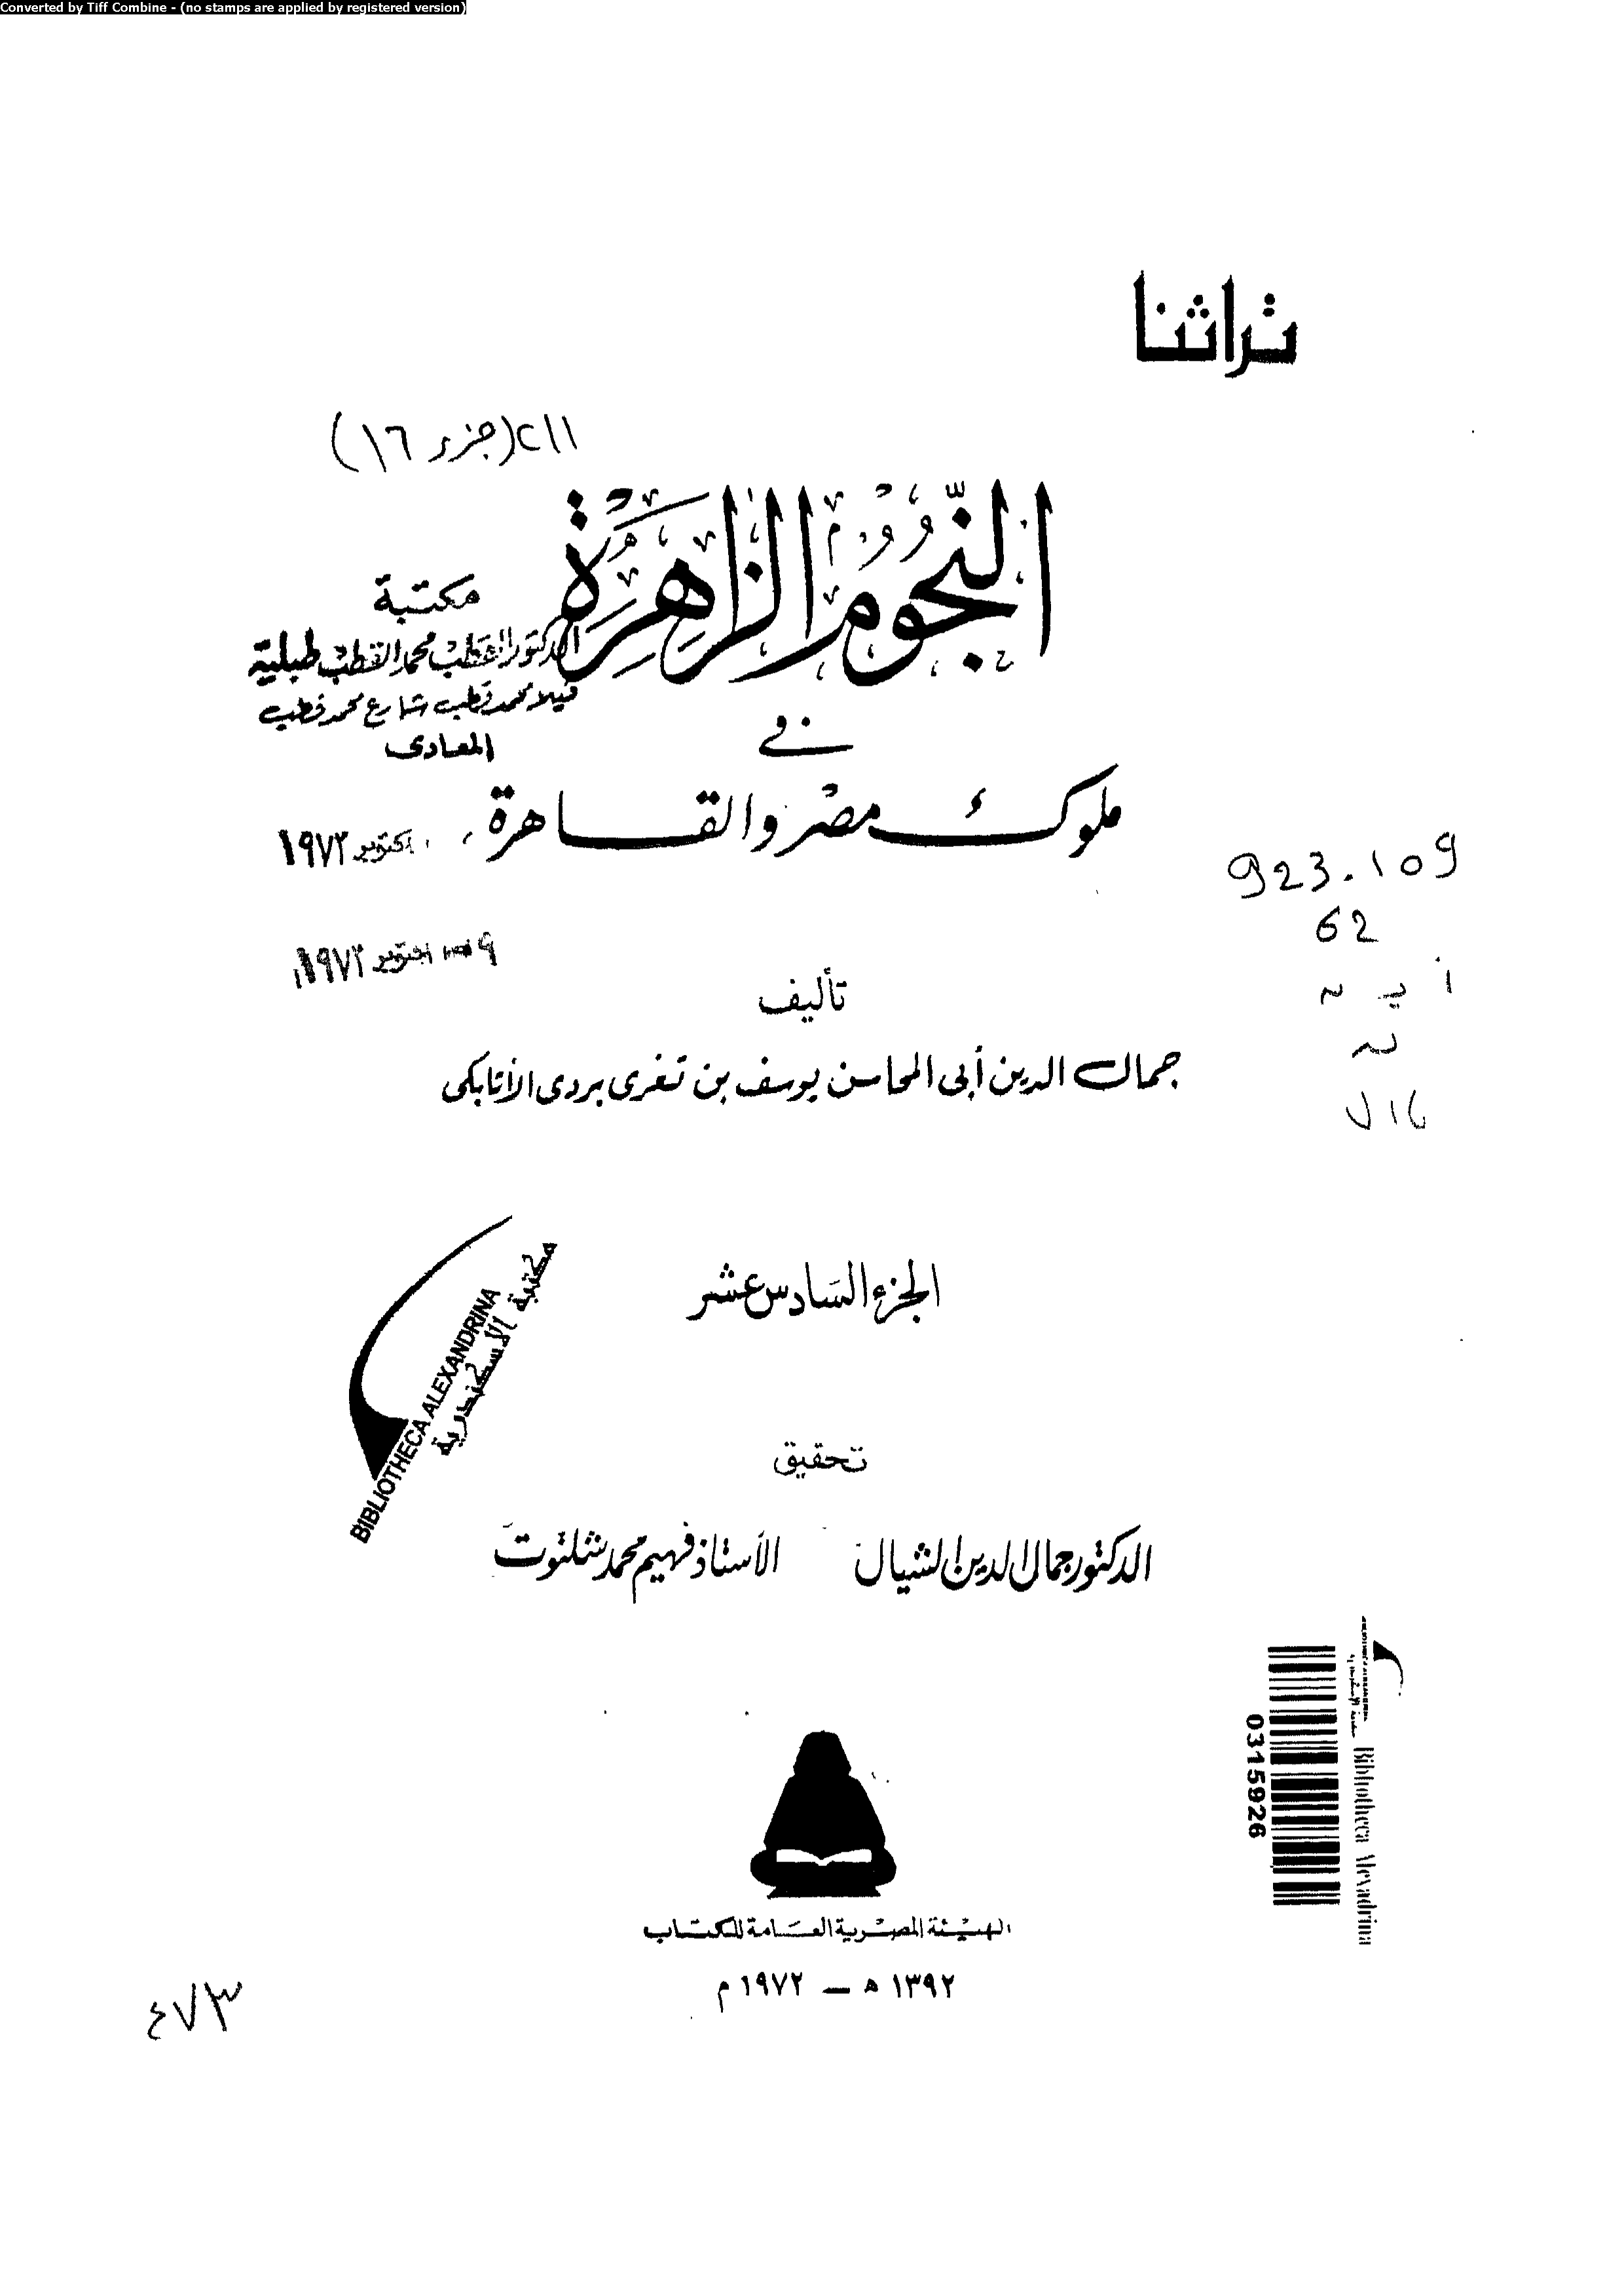 Converted by Tiff Combine - (no stamps are applied by registered version)
تراثنا
٢١١ (جزء ١٦)
النجوم الزاهرة
مكتبة
الدكتور القطب محمد القطب طبلية
فيلا محمد قطب شارع محمد قطب
المعادى
فى
ملوك مصر والقاهرة
أكتوبر ١٩٧٣
923.109
62
أكتوبر ١٩٧٣
تأليف
جمال الدين أبى المحاسن يوسف بن تغرى بردى الأتابكى
الجزء السادس عشر
BIBLIOTHECA ALEXANDRINA
مكتبة الاسكندرية
تحقيق
الدكتور جمال الدين الشيال الأستاذ فهيم محمد شلتوت
0315926
Bibliotheca Alexandrina
الهيئة المصرية العامة للكتاب
١٣٩٢ ه — ١٩٧٢ م
٤٧٣